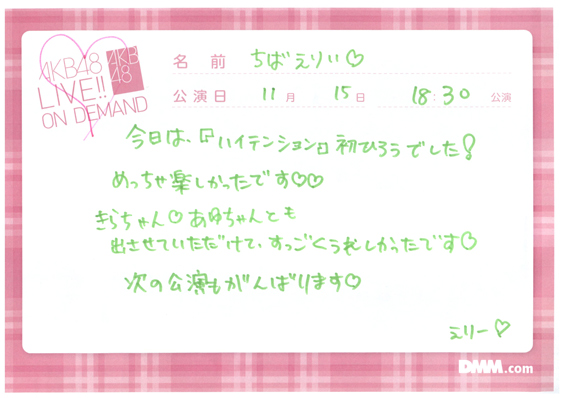 AKB48
LIVE!!
ON DEMAND
AKB
48
名前 ちばえりい♡
公演日 11月 15日 18:30 公演
今日は、『ハイテンション』初ひろうでした!
めっちゃ楽しかったです♡♡
きらちゃん♡あゆちゃんとも
出させていただけて、すっごくうれしかったです♡
次の公演もがんばります♡
えりー♡
DMM.com